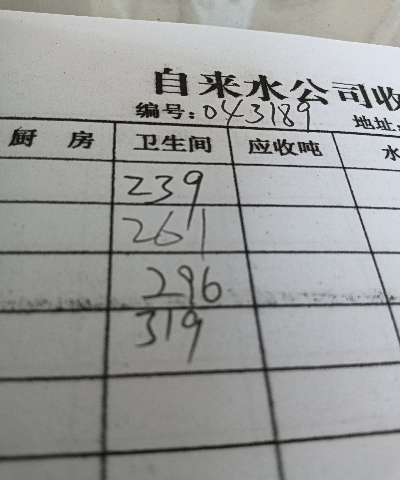 自来水公司收
编号:043189 地址:
厨 房 卫生间 应收吨 水
239
261
296
319